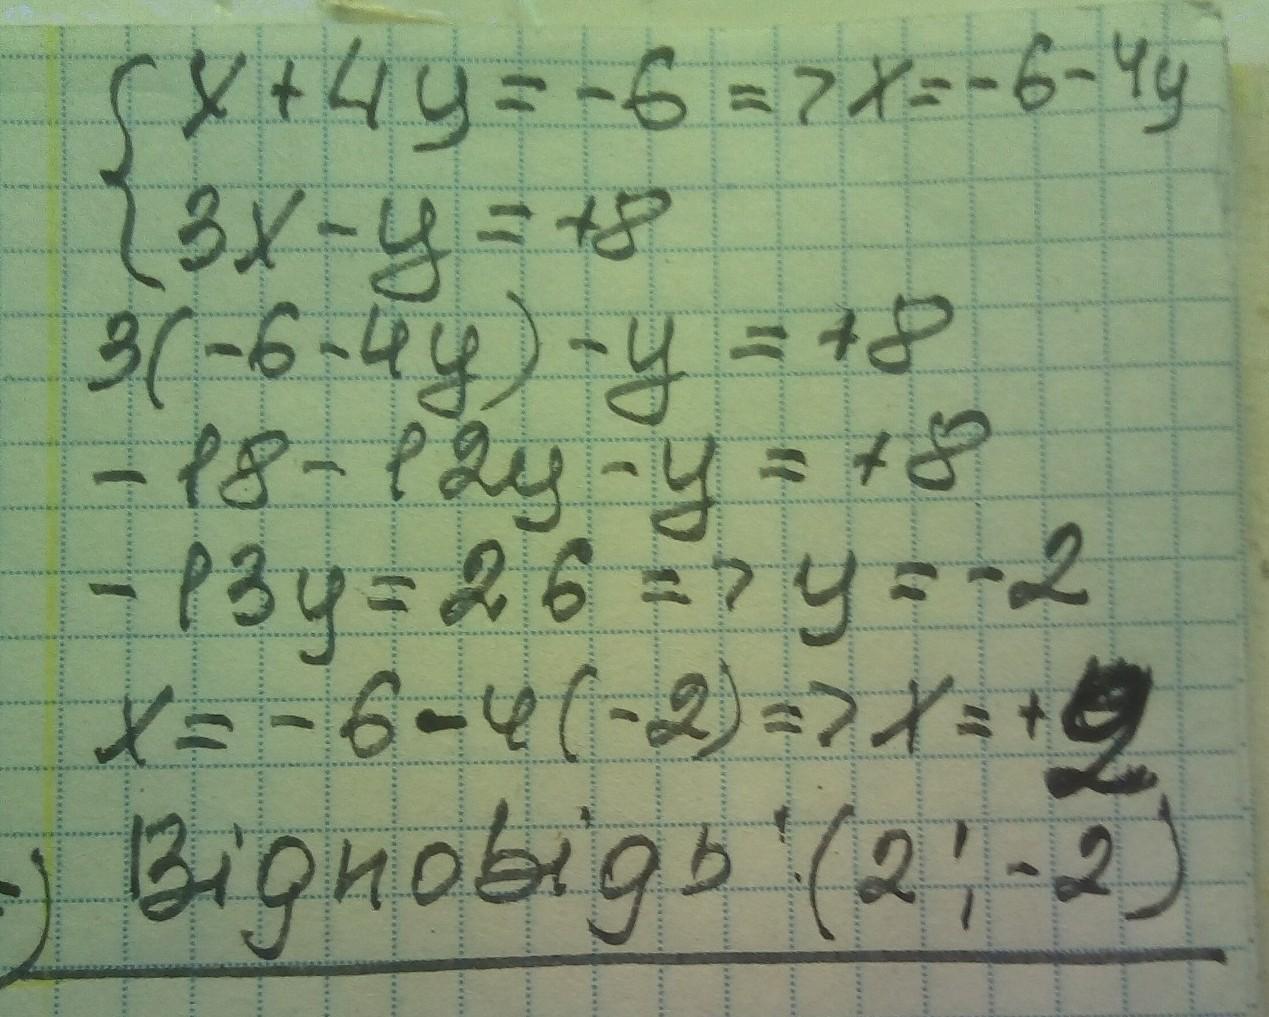 { x + 4y = -6 => x = -6 - 4y
3x - y = +8
3(-6 - 4y) - y = +8
- 18 - 12y - y = +8
- 13y = 26 => y = -2
x = -6 - 4(-2) => x = +2
Відповідь: (2; -2)